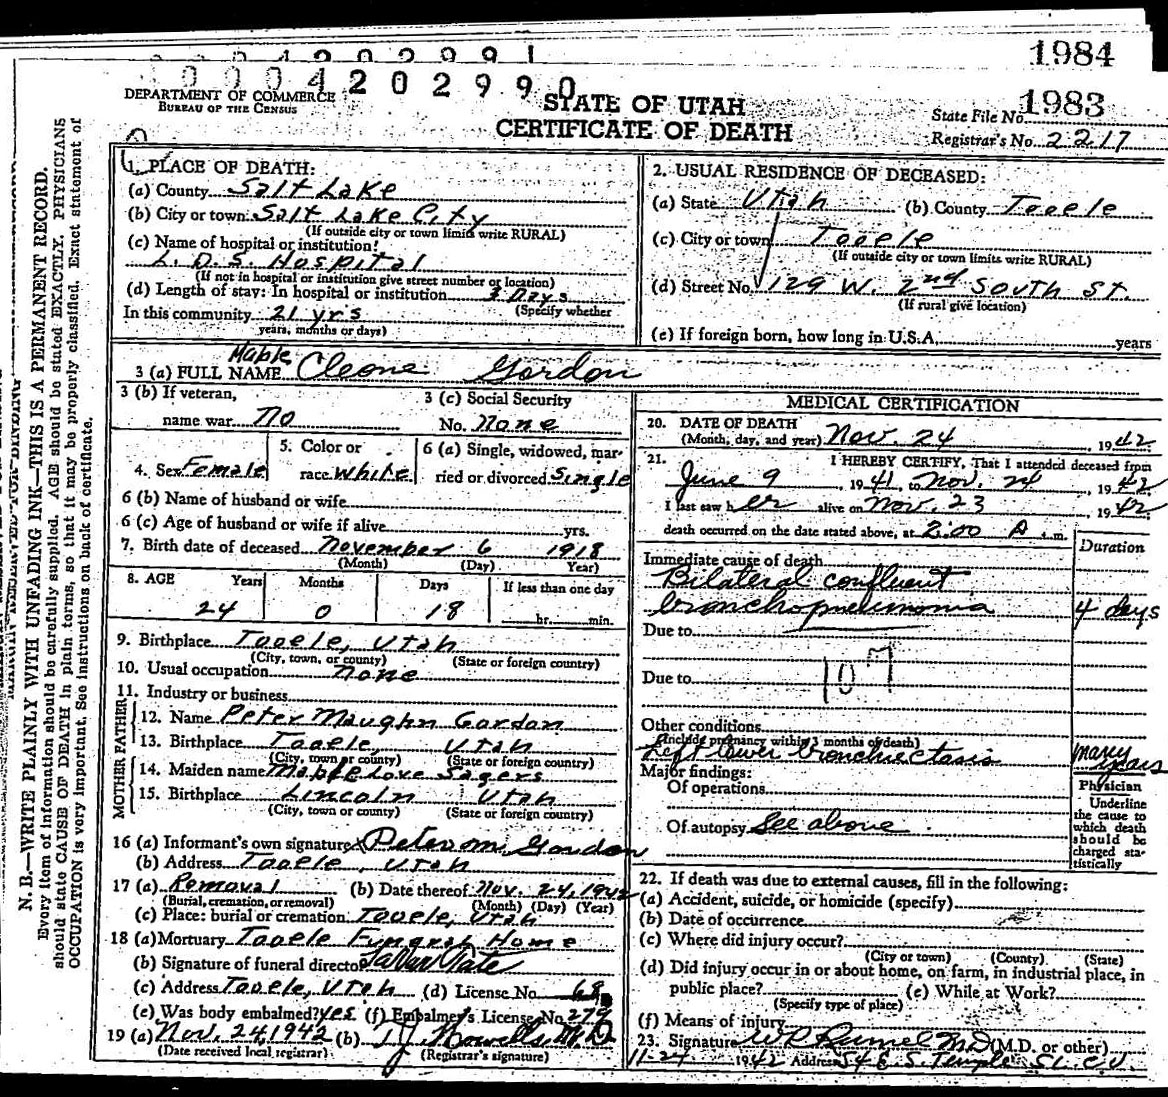 1984
0004202991
0004202990
DEPARTMENT OF COMMERCE
BUREAU OF THE CENSUS
STATE OF UTAH
CERTIFICATE OF DEATH
State File No. 1983
Registrar's No. 2217
N. B.—WRITE PLAINLY WITH UNFADING INK—THIS IS A PERMANENT RECORD.
Every item of information should be carefully supplied. AGE should be stated EXACTLY. PHYSICIANS
should state CAUSE OF DEATH in plain terms, so that it may be properly classified. Exact statement of
OCCUPATION is very important. See instructions on back of certificate.
1. PLACE OF DEATH:
(a) County Salt Lake
(b) City or town Salt Lake City
(If outside city or town limits write RURAL)
(c) Name of hospital or institution:
L. D. S. Hospital
(If not in hospital or institution give street number or location)
(d) Length of stay: In hospital or institution 3 Days
(Specify whether
In this community 21 yrs
years, months or days)
2. USUAL RESIDENCE OF DECEASED:
(a) State Utah (b) County Tooele
(c) City or town Tooele
(If outside city or town limits write RURAL)
(d) Street No. 129 W. 2nd South St.
(If rural give location)
(e) If foreign born, how long in U.S.A. years
Mable
3 (a) FULL NAME Cleone Gordon
3 (b) If veteran,
name war No
3 (c) Social Security
No. None
4. Sex Female
5. Color or
race White
6 (a) Single, widowed, mar-
ried or divorced Single
6 (b) Name of husband or wife
6 (c) Age of husband or wife if alive yrs.
7. Birth date of deceased November 6 1918
(Month) (Day) Year)
8. AGE Years Months Days If less than one day
24 0 18 hr. min.
9. Birthplace Tooele, Utah
(City, town, or county) (State or foreign country)
10. Usual occupation none
11. Industry or business
FATHER
12. Name Peter Maughn Gordon
13. Birthplace Tooele, Utah
(City, town or county) (State or foreign country)
MOTHER
14. Maiden name Mable Love Sagers
15. Birthplace Lincoln Utah
(City, town or county) (State or foreign country)
16 (a) Informant's own signature Peter M. Gordon
(b) Address Tooele, Utah
17 (a) Removal (b) Date thereof Nov. 24, 1942
(Burial, cremation, or removal) (Month) (Day) (Year)
(c) Place: burial or cremation Tooele, Utah
18 (a) Mortuary Tooele Funeral Home
(b) Signature of funeral director Tate
(c) Address Tooele, Utah (d) License No. 68
(e) Was body embalmed? yes (f) Embalmer's License No. 279
19 (a) Nov. 24, 1942 (b) Howells M.D.
(Date received local registrar) (Registrar's signature)
MEDICAL CERTIFICATION
20. DATE OF DEATH
(Month, day, and year) Nov. 24 1942
21. I HEREBY CERTIFY, That I attended deceased from
June 9, 1941, to Nov. 24, 1942
I last saw her alive on Nov. 23, 1942
death occurred on the date stated above, at 2:00 A m.
Duration
Immediate cause of death
Bilateral confluent
bronchopneumonia 4 days
Due to
107
Due to
Other conditions
(Include pregnancy within 3 months of death)
Left lower bronchiectasis many years
Major findings:
Of operations
Of autopsy See above
Physician
Underline
the cause to
which death
should be
charged sta-
tistically
22. If death was due to external causes, fill in the following:
(a) Accident, suicide, or homicide (specify)
(b) Date of occurrence
(c) Where did injury occur?
(City or town) (County) (State)
(d) Did injury occur in or about home, on farm, in industrial place, in
public place? (e) While at Work?
(Specify type of place)
(f) Means of injury
23. Signature W R Rumel M.D. (M.D. or other)
11-24 1942 Address 54 E. S. Temple S.L.C.U.